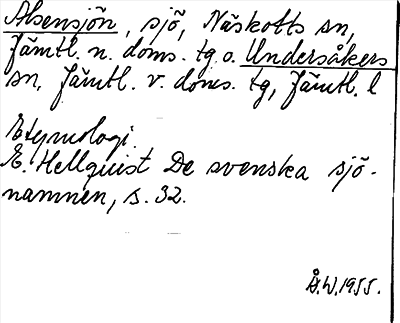 Alsensjön, sjö, Näskotts sn,
Jämtl. n. doms. tg o. Undersåkers
sn, Jämtl. v. doms. tg, Jämtl. l
Etymologi.
E. Hellquist De svenska sjö-
namnen, s. 32.
Å.W. 1955.